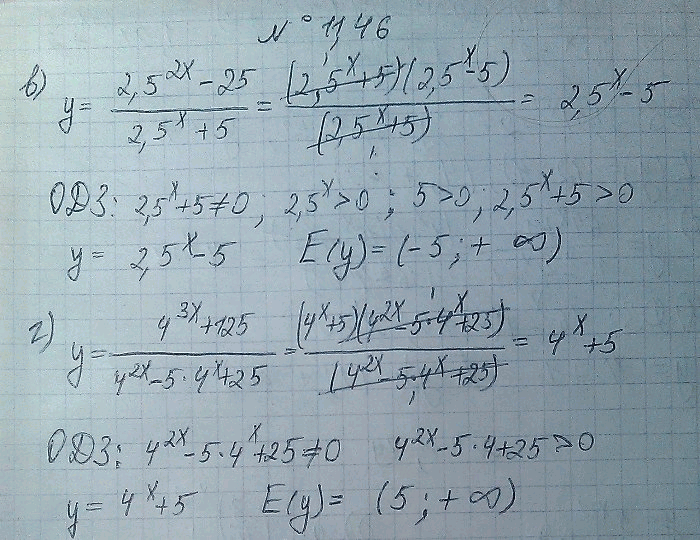 N° 11,46
в) y = (2,5^(2x) - 25)/(2,5^x + 5) = ((2,5^x + 5)(2,5^x - 5))/((2,5^x + 5)) = 2,5^x - 5
ОДЗ: 2,5^x + 5 ≠ 0; 2,5^x > 0; 5 > 0; 2,5^x + 5 > 0
y = 2,5^x - 5 E(y) = (-5; + ∞)
г) y = (4^(3x) + 125)/(4^(2x) - 5·4^x + 25) = ((4^x + 5)(4^(2x) - 5·4^x + 25))/((4^(2x) - 5·4^x + 25)) = 4^x + 5
ОДЗ: 4^(2x) - 5·4^x + 25 ≠ 0 4^(2x) - 5·4 + 25 > 0
y = 4^x + 5 E(y) = (5; + ∞)